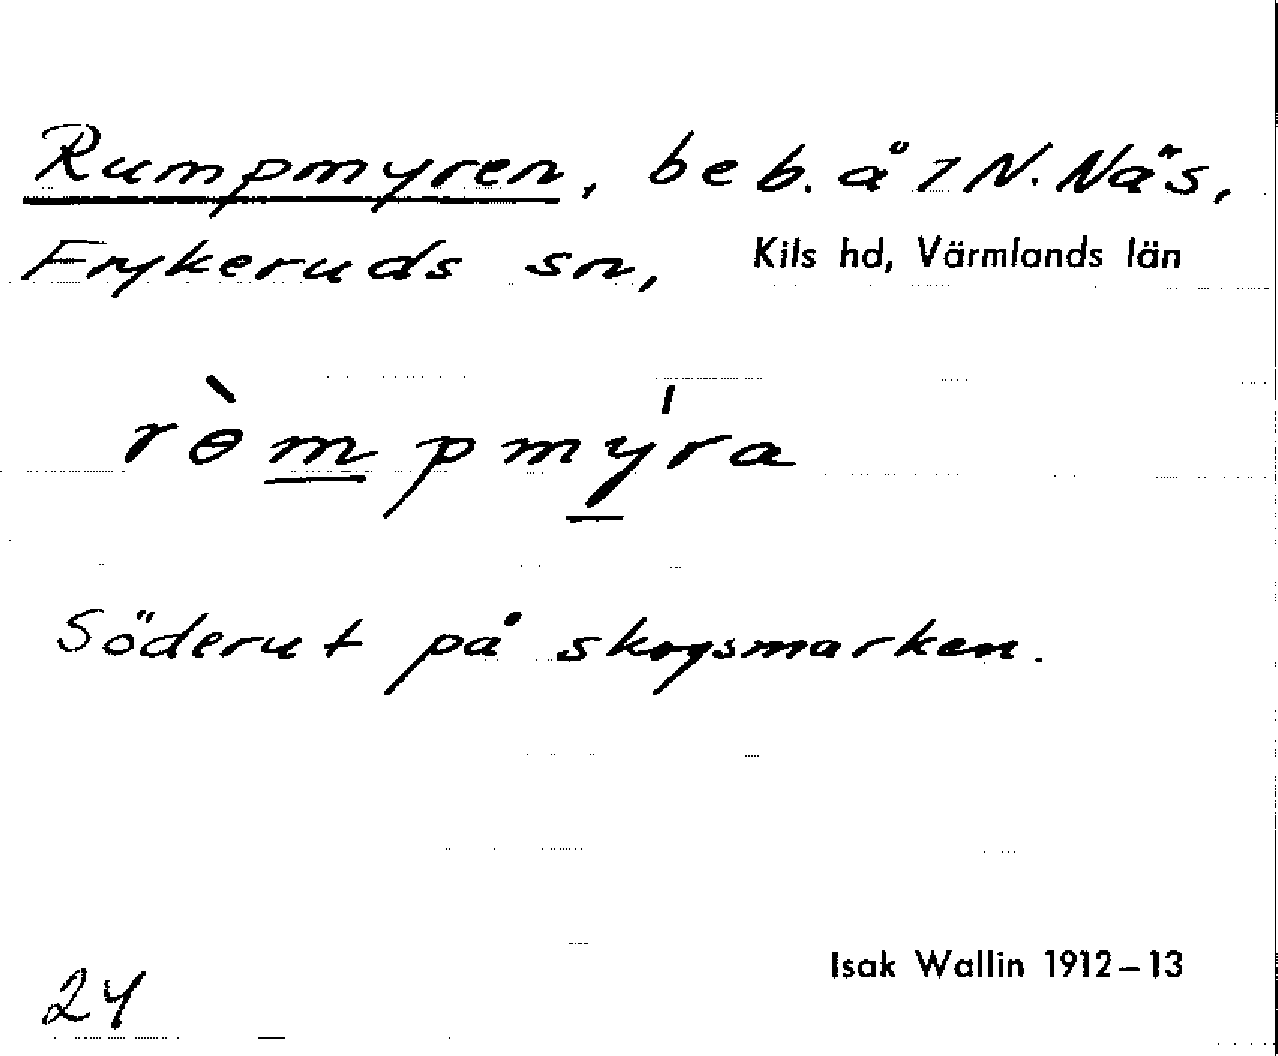 Rumpmyren, beb. å 1 N. Näs,
Frykeruds sn, Kils hd, Värmlands län
rɵ̀mpmýra
Söderut på skogsmarken.
Isak Wallin 1912–13
24